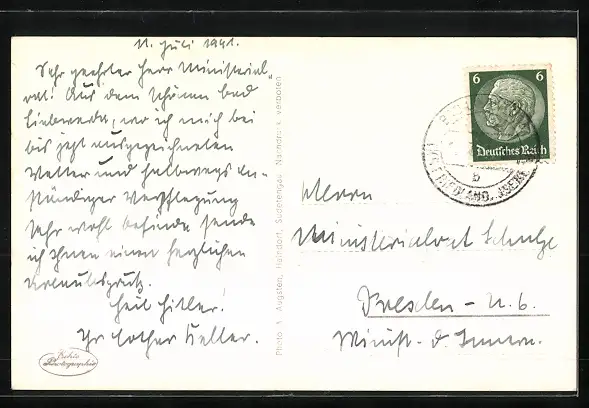 11. Juli 1941.
Sehr geehrter Herr Ministerial-
rat! Aus dem schönen Bad
Liebwerda, wo ich mich bei
bis jetzt ausgezeichneten
Wetter und halbwegs an-
ständiger Verpflegung
sehr wohl befinde sende
ich Ihnen einen herzlichen
Urlaubsgruß.
Heil Hitler!
Ihr Lothar Keller.
Echte
Photographie
Photo J. Augsten, Haindorf, Sudetengau. Nachdruck verboten
6 6
Deutsches Reich
b
Herrn
Ministerialrat Schulze
Dresden - N. 6.
Minist. d. Innern.